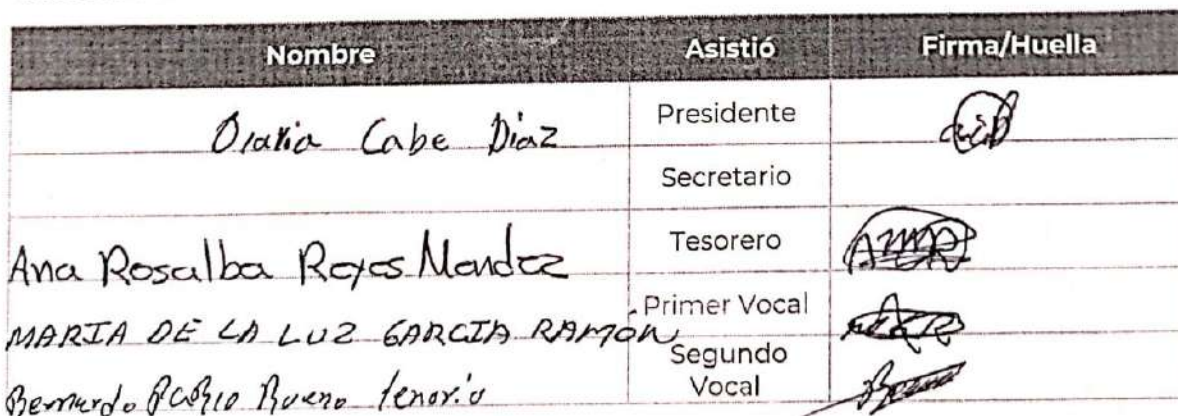 Nombre Asistió Firma/Huella
Cabe Diaz Presidente
Secretario
Ana Rosalba Reyes Mendez Tesorero
MARIA DE LA LUZ GARCIA RAMÓN Primer Vocal
Bernardo Bueno Tenorio Segundo
Vocal